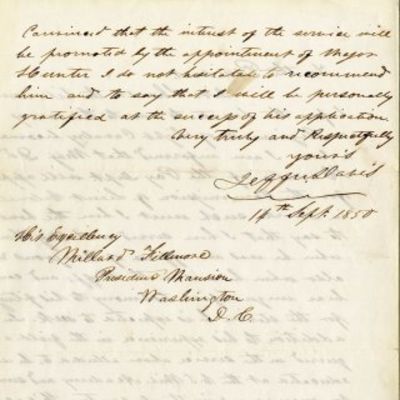 Convinced that the interest of the service will
be promoted by the appointment of Major
Hunter I do not hesitate to recommend
him and to say that I will be personally
gratified at the success of his application.
Very truly and Respectfully
yours
Jeffn Davis
14th Sept. 1850
His Excellency
Millard Fillmore
President Mansion
Washington
D.C.